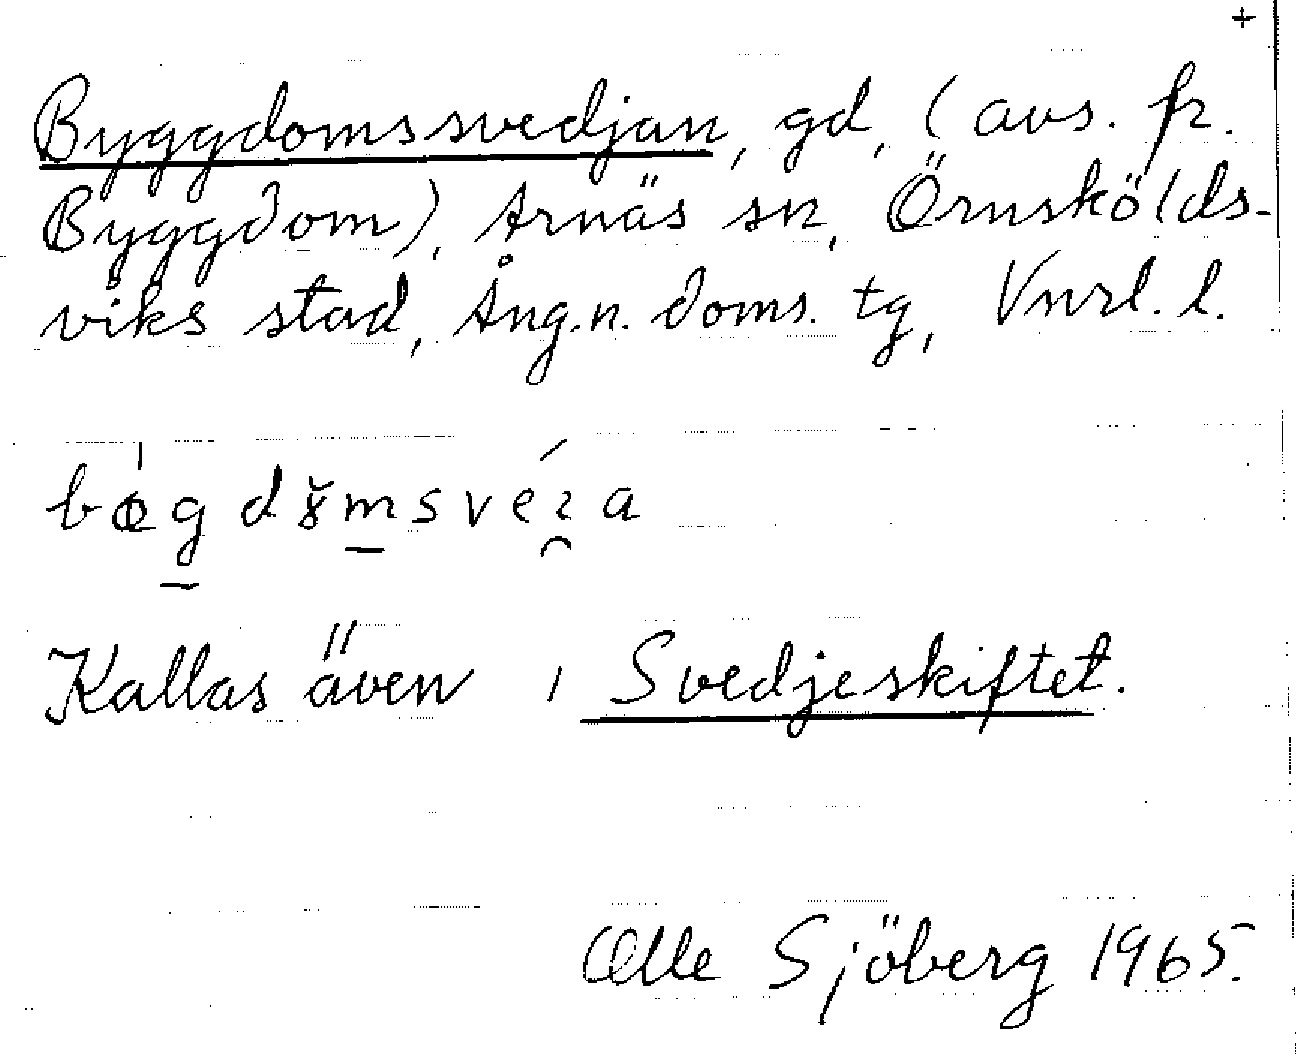 +
Byggdomssvedjan, gd, (avs. fr.
Byggdom), Arnäs sn, Örnskölds-
viks stad, Ång.n. doms. tg, Vnrl. l.
Kallas även , Svedjeskiftet.
Olle Sjöberg 1965.